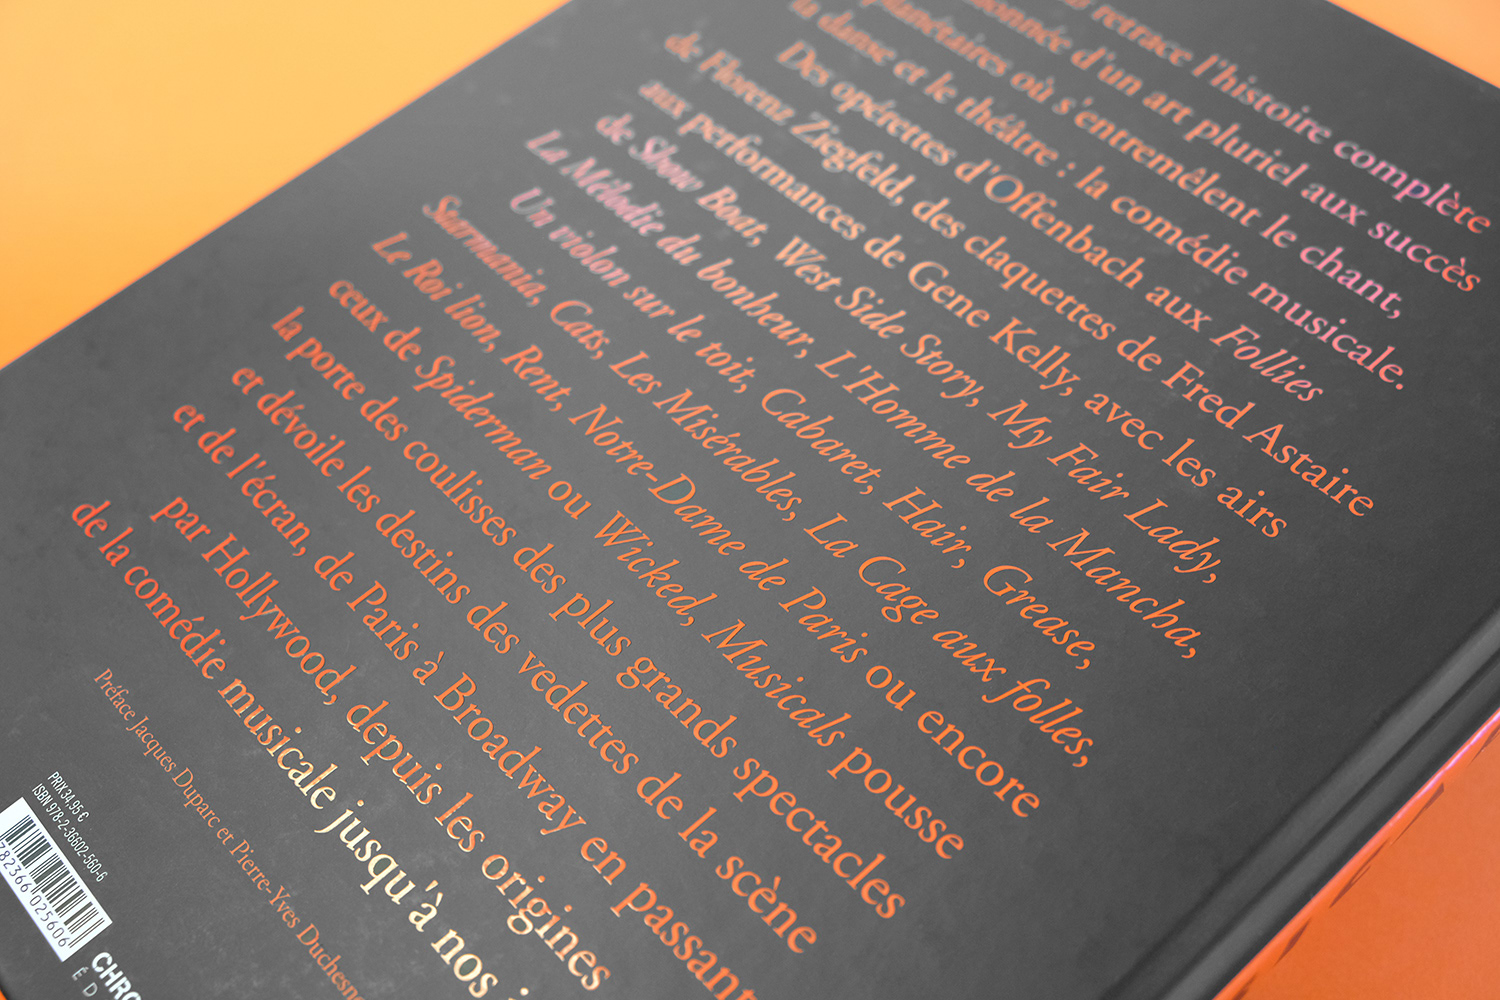 retrace l'histoire complète
d'un art pluriel aux succès
planétaires où s'entremêlent le chant,
danse et le théâtre : la comédie musicale.
Des opérettes d'Offenbach aux Follies
de Florenz Ziegfeld, des claquettes de Fred Astaire
aux performances de Gene Kelly, avec les airs
de Show Boat, West Side Story, My Fair Lady,
La Mélodie du bonheur, L'Homme de la Mancha,
Un violon sur le toit, Cabaret, Hair, Grease,
Starmania, Cats, Les Misérables, La Cage aux folles,
Le Roi lion, Rent, Notre-Dame de Paris ou encore
ceux de Spiderman ou Wicked, Musicals pousse
la porte des coulisses des plus grands spectacles
et dévoile les destins des vedettes de la scène
et de l'écran, de Paris à Broadway en passant
par Hollywood, depuis les origines
de la comédie musicale jusqu'à nos
Préface Jacques Duparc et Pierre-Yves Duchesne
PRIX 34,95 €
ISBN 978-2-36602-560-6
782366 025606
CHRO
ÉD